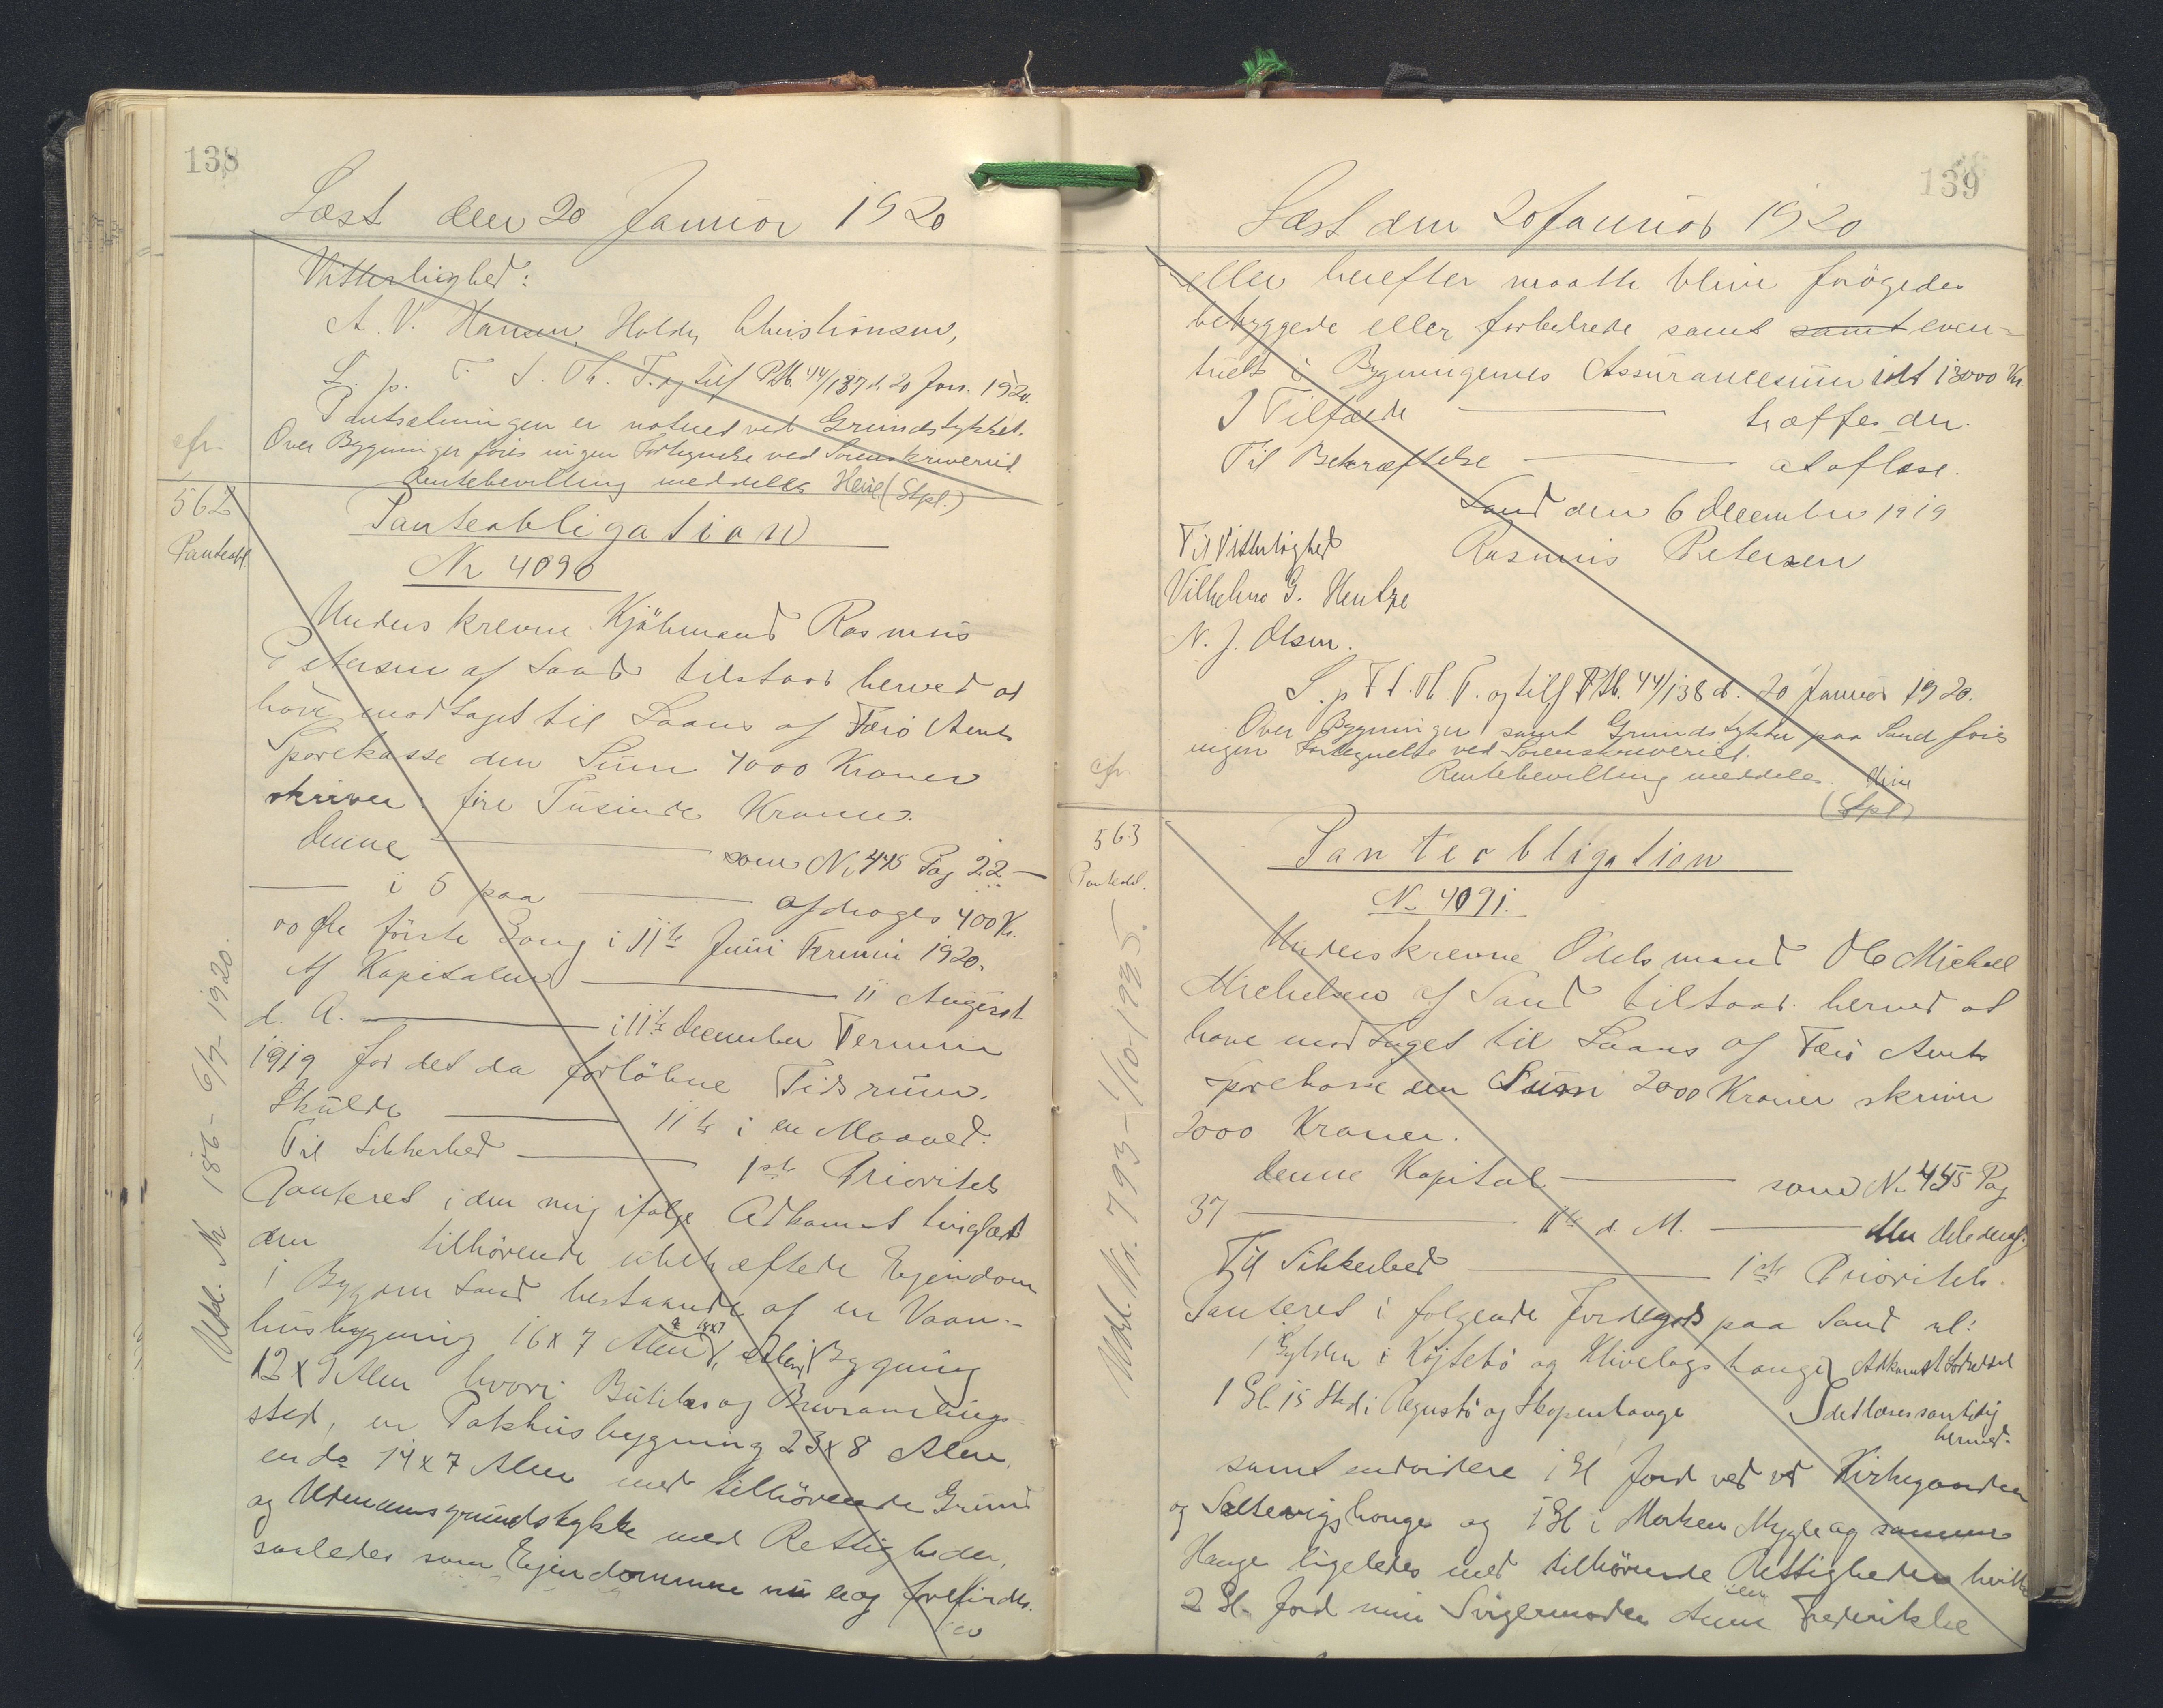 138
Læst den 20 Januar 1920
Vitterlighed:
A. V. Hansen, Holder Christiansen,
L. p. T. S. Th. T. og tilf Ptb. 44/137 d. 20 Jan. 1920.
Pantsætningen er noteret ved Grundstykket.
cfr. Over Bygninger føres ingen Fortegnelse ved Sorenskriveriet.
Rentebevilling meddeles Heise (Stpl.)
562
Panteobl.
Panteobligation
Nr 4090
Underskrevne Kjöbmand Rasmus
Petersen af Sand tilstaar herved at
have modtaget til Laans af Færö Amts
Sparekasse den Sum 4000 Kroner
skriver fire Tusinde Kroner.
Denne — som Nr 445 Pag 22 —
— i 5 paa — afdrages 400 Kr.
00 Øre første Gang i 11te Juni Termin 1920.
Af Kapitalen — 11 August
d. A. — i 11te December Termin
1919 for det da forlöbne Tidsrum.
Skulde — 11te i en Maaned.
Til Sikkerhed — 1ste Prioritets
Panteret i den mig ifölge Adkomst tinglæst
den tilhörende ubehæftede Ejendom
i Bygden Sand bestaaende af en Vaan-
husbygning 16 x 7 Alen, Bygning
12 x 9 Alen hvori Butiks og
sted, en Pakhusbygning 23 x 8 Alen,
en do 14 x 7 Alen med tilhörende Grund
og Udenomsgrundstykke med Rettigheder,
saaledes som Ejendommen nu er og forefindes.
Udsl. Nr 186 - 6/7 - 1920.
139
Læst den 20 Januar 1920
eller herefter maatte blive forögede
bebyggede eller forbedrede samt samt even-
tuelt i Bygningernes Assurancesum ialt 13000 Kr.
I Tilfælde — træffes der.
Til Bekræftelse — at aflæse.
Sand den 6 December 1919
Til Vitterlighed Rasmus Petersen
Vilhelm G. Hentze
N. J. Olsen.
L. p. T. S. Th. T. og tilf Ptb. 44/138 d. 20 Januar 1920.
Over Bygninger samt Grundstykker paa Sand føres
ingen Fortegnelse ved Sorenskriveriet.
cfr. Rentebevilling meddeles. Heise
(Stpl.)
563
Panteobl.
Panteobligation
Nr 4091.
Underskrevne Odelsmand Ole Michael
Michelsen af Sand tilstaar herved at
have modtaget til Laans af Færö Amts
Sparekasse den Sum 2000 Kroner skriver
2000 Kroner.
Denne Kapital — som Nr 445 Pag
37 — 11te d. M. — eller Dele deraf.
Til Sikkerhed — 1ste Prioritets
Panteret i følgende Jordegods paa Sand nl:
1 Gylden i Köjtebö og Klivelogs hauge Adkomst
1 Gl. 15 Skd i og Skopenhauge det læses samtidig
hermed.
samt endvidere 1 Gl Jord ved Kirkegaarden
og Saltevigshauge og 1 Gl i Marken og samme
Hauge ligeledes med tilhörende Rettigheder hvilke
2 Gl. Jord min Svigermoder Anne Frederikke
Udsl. Nr. 793 - 1/10 - 1925.